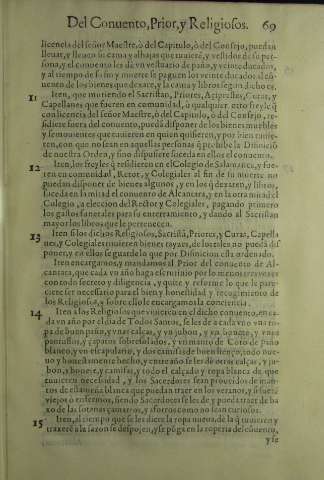 Del Conuento, Prior, y Religiosos. 69
licencia del señor Maestre, ò del Capitulo, ò del Consejo, puedan
lleuar, y lleuen su cama y alhajas que tuuiere, y vestidos de su per-
sona, y el conuento les dè vn vestuario de paño, y veinte ducados,
y al tiempo de su fin y muerte se paguen los veinte ducados al cõ-
uento de los bienes que dexare, y la cama, y libros segun dicho es.
11 Iten, que muriendo el Sacristan, Priores, Arciprestes, Curas, y
Capellanes que fueren en comunidad, ò qualquier otro freyle q̃
con licencia del señor Maestre, ò del Capitulo, ò del Consejo, re-
sidiere fuera del conuento, pueda disponer de los bienes muebles
y semouientes que tuuieren en quien quisieren, y por bien tuuie-
ren, con que no sean en aquellas personas q̃ prohibe la Difinició
de nuestra Orden, y sino dispusiere suceda en ellos el conuento.
12 Iten, los freyles q̃ residieren en el Colegio de Salamanca, y fue-
ren en comunidad, Retor, y Colegiales al fin de su muerte no
puedan disponer de bienes algunos, y en los q̃ dexaren, y libros,
suceda en la mitad el conuento de Alcantara, y en la otra mitad el
Colegio, a eleccion del Rector y Colegiales, pagando primero
los gastos funerales para su enterramiento, y dando al Sacristan
mayor los libros que le pertenecen.
13 Iten si los dichos Religiosos, Sacristã, Priores, y Curas, Capella
nes, y Colegiales tuuieren bienes rayzes, de los tales no pueda dis
poner, y en ellos se guarde lo que por Difinicion està ordenado.
Iten encargamos, y mandamos al Prior del conuento de Al-
cantara, que cada vn año haga escrutinio por lo menos tres vezes
con todo secreto y diligencia, y quite y reforme lo que le pare-
ciere ser necessario para el bien y honestidad y recogimiento de
los Religiosos, y sobre ello le encargamos la conciencia.
14 Iten a los Religiosos que viuieren en el dicho conuento, en ca-
da vn año por el dia de Todos Santos, se les dè a cada vno vna ro-
pa de buen paño, y vnas calças, y vn jubon, y vn bonete, y vnos
pantuflos, y çapatos sobresolados, y vn manto de Coto de paño
blanco, y vn escapulario, y dos camisas de buen lienço, todo nue-
uo y honestamente hecho, y en medio año se les dè otras calças, y ju-
bon, y bonete, y camisas, y todo el calçado y ropa blanca de que
tuuieren necessidad, y los Sacerdotes sean proueidos de man-
tos de estameña blanca que puedan traer en los veranos, y si fueré
viejos ò enfermos, siendo Sacerdotes se les dè y pueda traer de ba
xo de las sotanas çamarros, y aforros como no sean curiosos.
15 Iten, al tiempo que se les diere la ropa nueua, de la q̃ tuuieren y
traxerẽ a la sazon se despojen, y se põga en la roperia del cõuento,
y se